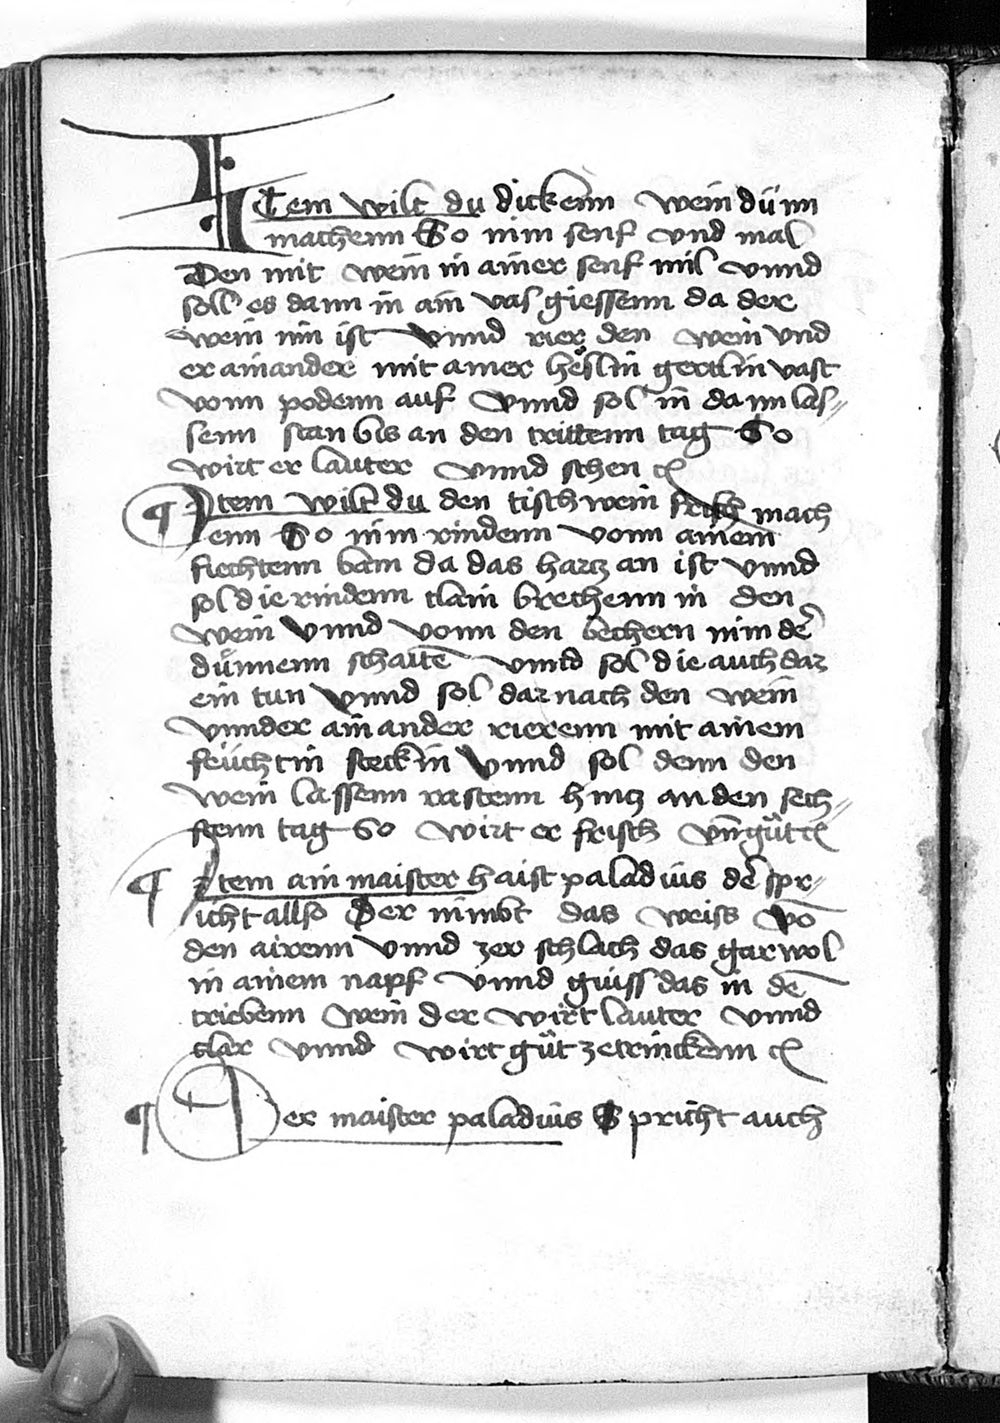 ITem wilt du dickenn wein dünn
machenn So nim senf vnd mal
Den mit wein in ainer senf mil vnnd
soll es dann in ain vas giessenn da der
wein inn ist vnnd rier den wein vnd
er ainander mit ainer heslin gertlin vast
vonn podenn auf vnnd sol in dann las//
senn stan bis an den trittenn tag So
wirt er lauter vnnd schen
¶ Item wilt du den tisch wein frisch mach
enn So nim rindenn vonn ainem
fiechtenn bam da das hartz an ist vnnd
sol die rindenn clain brechenn in den
wein vnnd vonn den bechern nim dē
dünnenn schaitē vnnd sol die auch dar
ein tun vnnd sol dar nach den wein
vnnder ain ander rierenn mit ainem
feüchtin steckin vnnd sol denn den
wein lassenn rastenn hintz an den sech//
stenn tag So wirt er frisch vn̄ gůt
¶ Item ain maister haist paladius dē spr//
icht allso Der nimbt das weiss vō
den airenn vnnd zer schlach das gar wol
in ainem napf vnnd guiss das in dē
triebenn wein der wirt lauter vnnd
clar vnnd wirt gůt ze trinckenn
¶ Der maister paladius Spricht auch